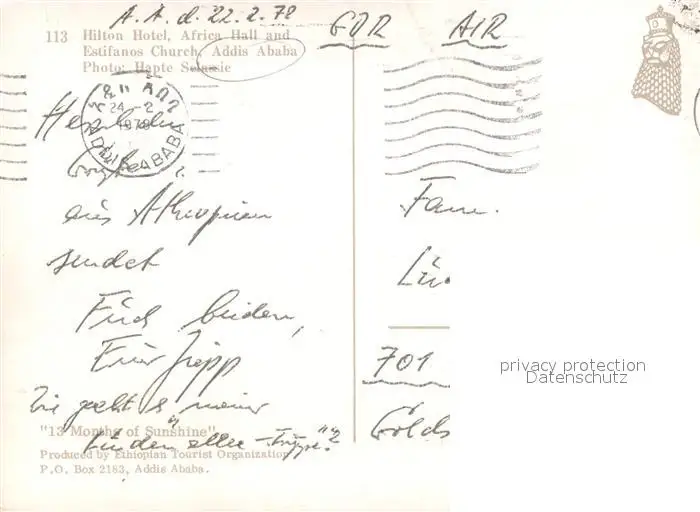 A. A. d. 22.2.78
GDR AIR
113 Hilton Hotel, Africa Hall and
Estifanos Church, Addis Ababa
Photo: Hapte Selassie
24-2
1978
ADDIS ABABA
Herzliche
Grüße
aus Äthiopien
sendet
Euch beiden,
Euer Jupp
Wie geht's meiner
"13 Months of Sunshine"
Produced by Ethiopian Tourist Organization
P.O. Box 2183, Addis Ababa.
Fam.
Lü
701
Golds
privacy protection
Datenschutz